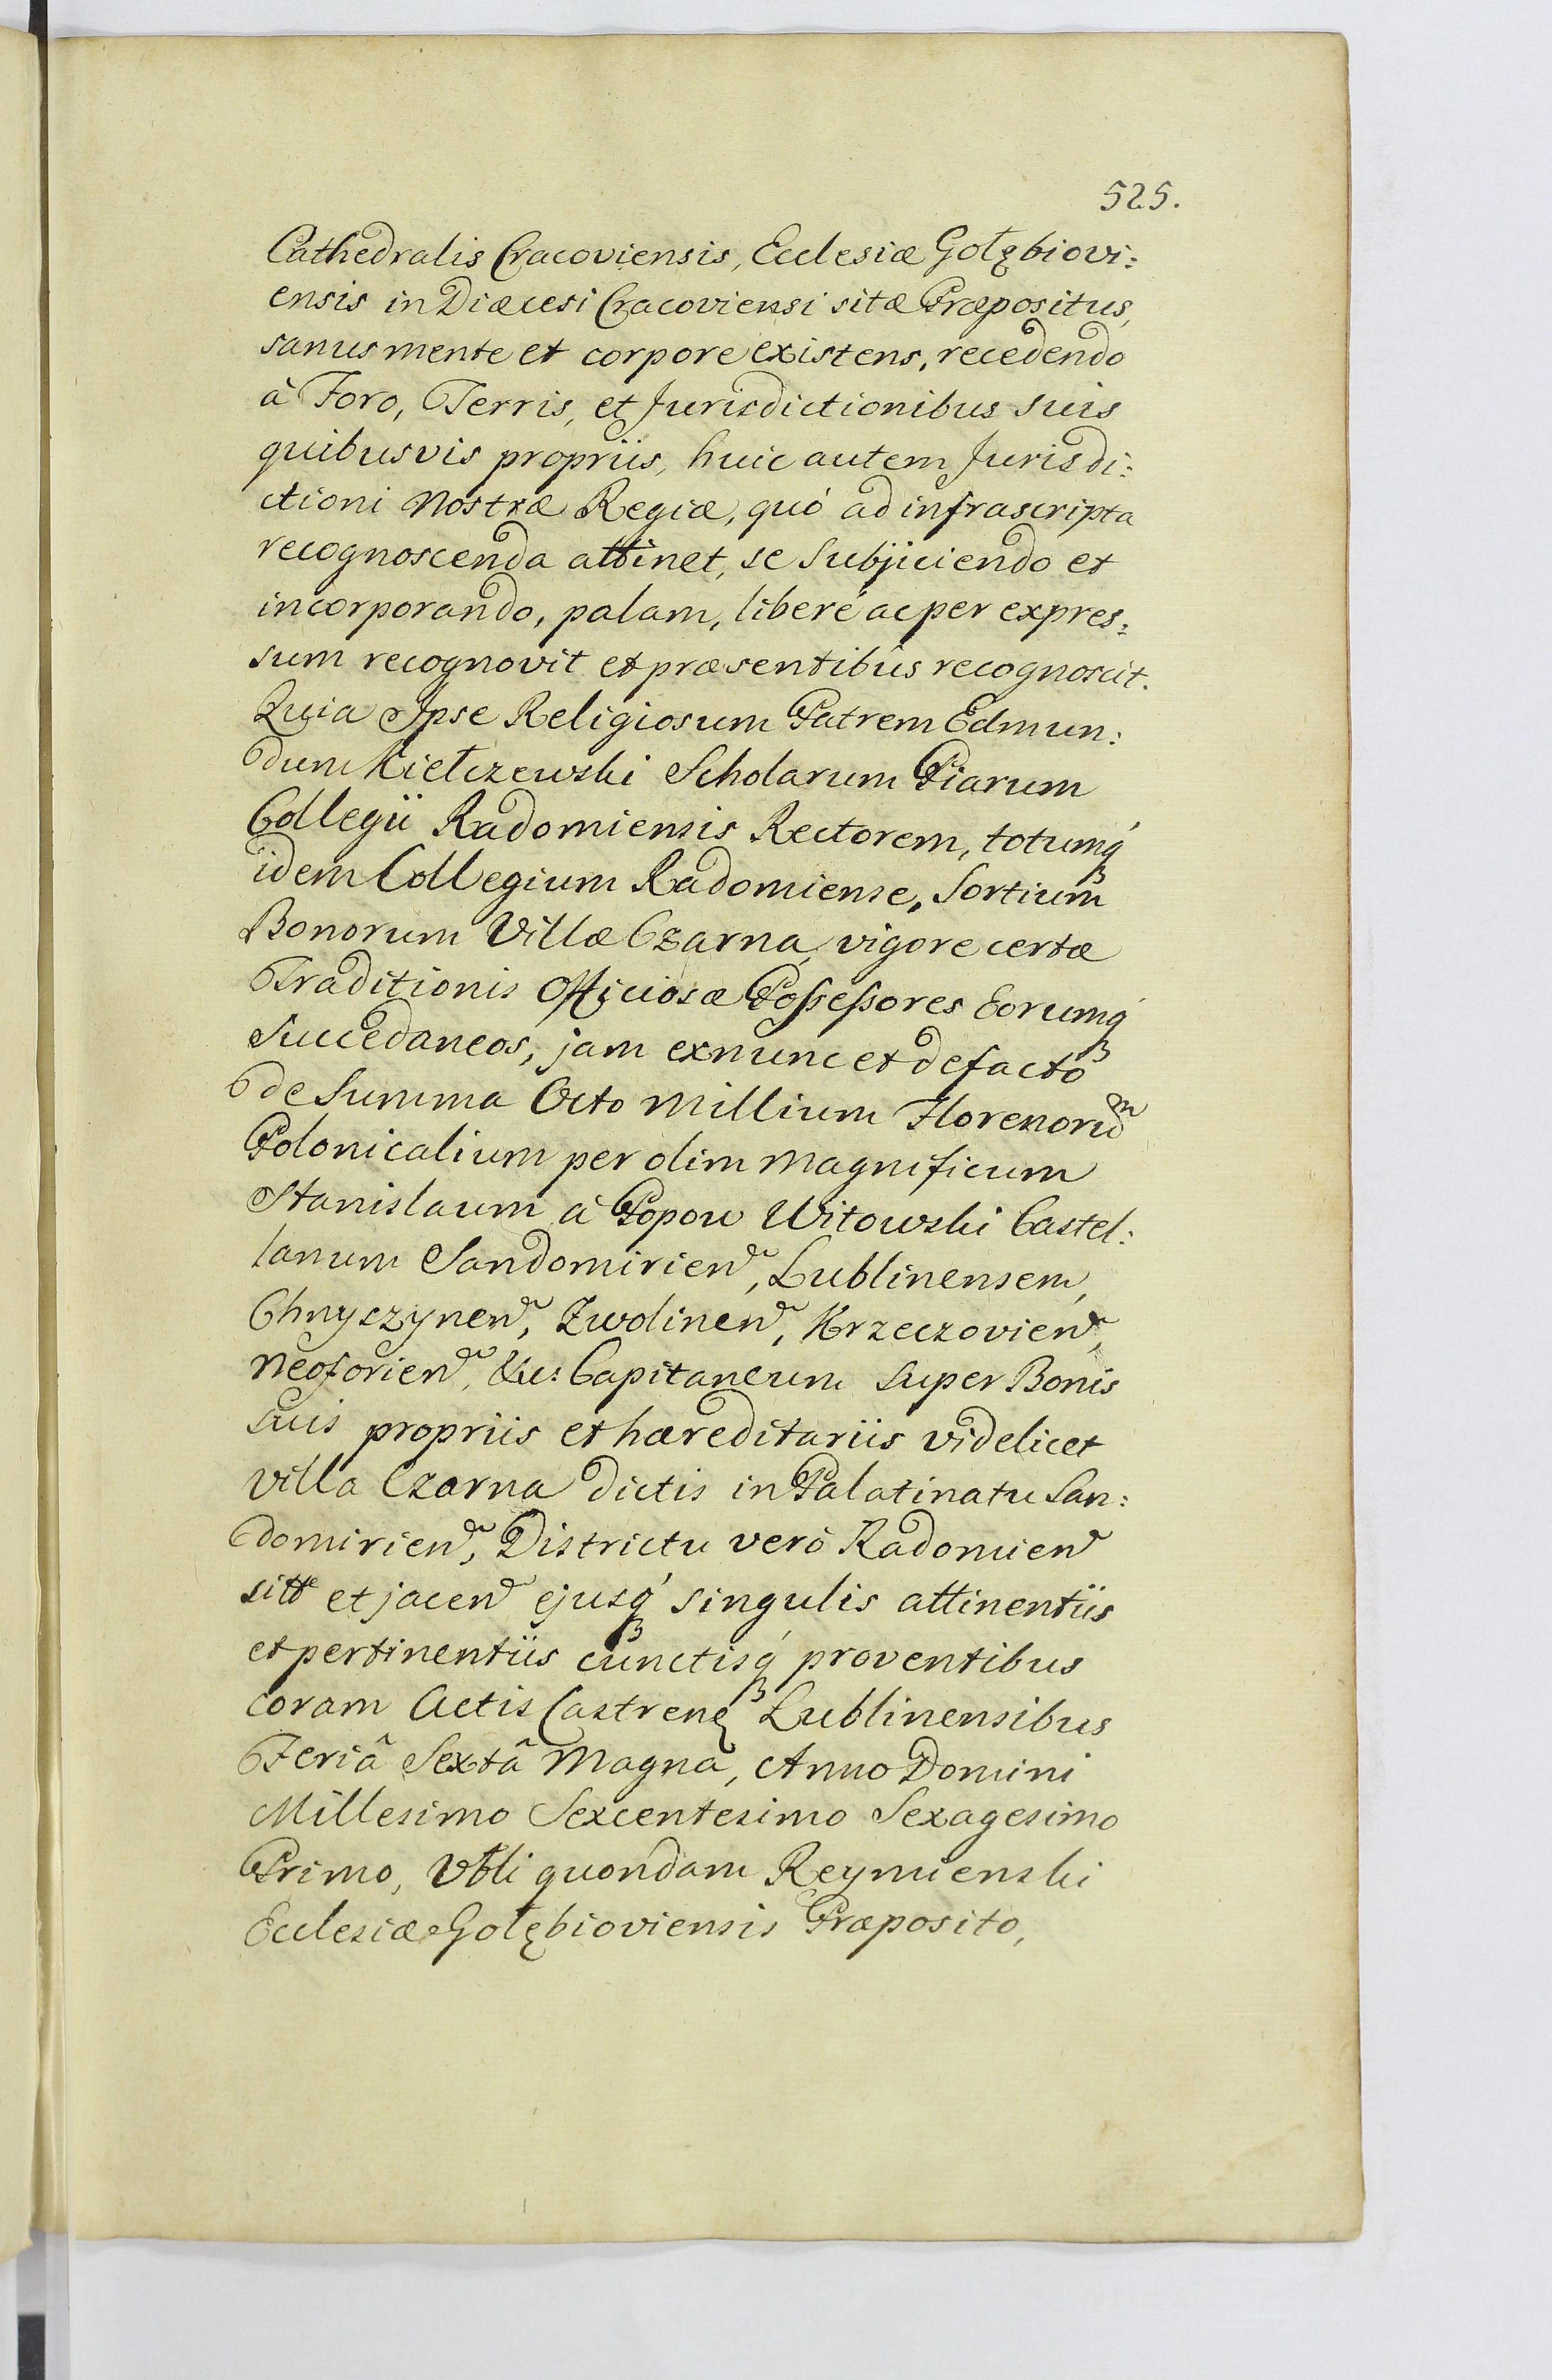 525.
Cathedralis Cracoviensis, Ecclesiæ Gołębiovi:
ensis in Diæcesi Cracoviensi sitæ Præpositus,
sanus mente et corpore existens, recedendo
à Foro, Terris, et Jurisdictionibus suis
quibusvis propriis, huic autem Jurisdi:
ctioni Nostræ Regiæ, quó ad infrascripta
recognoscenda attinet, se subjiciendo et
incorporando, palam, liberé ac per expres:
sum recognovit et præsentibûs recognoscit.
Quia Ipse Religiosum Patrem Edmun:
dum Kiełczewski Scholarum Piarum
Collegii Radomiensis Rectorem, totumq́
idem Collegium Radomiense, Sortium
Bonorum Villæ Czarna, vigore certæ
Traditionis Officiosæ Possessores Eorumq́
Succedaneos, jam exnunc et defactó
de Summa Octo Millium Florenorũm
Polonicalium per olim Magnificum
Stanislaum à Popow Witowski Castel:
lanum Sandomirien, Lublinensem,
Chnyszynen, Zwolinen, Krzeczovien,
Neoforien, &c: Capitaneum super Bonis
suis propriis et hæreditariis videlicet
villa Czarna dictis in Palatinatu San:
domirien, Districtu veró Radomien
sitt et jacen ejusq́ singulis attinentiis
et pertinentiis cunctisq́ proventibus
coram Actis Castren Lublinensibus
Feriâ Sextâ Magna, Anno Domini
Millesimo Sexcentesimo Sexagesimo
Primo, Vbli quondam Reymienski
Ecclesiæ Gołębioviensis Præposito,